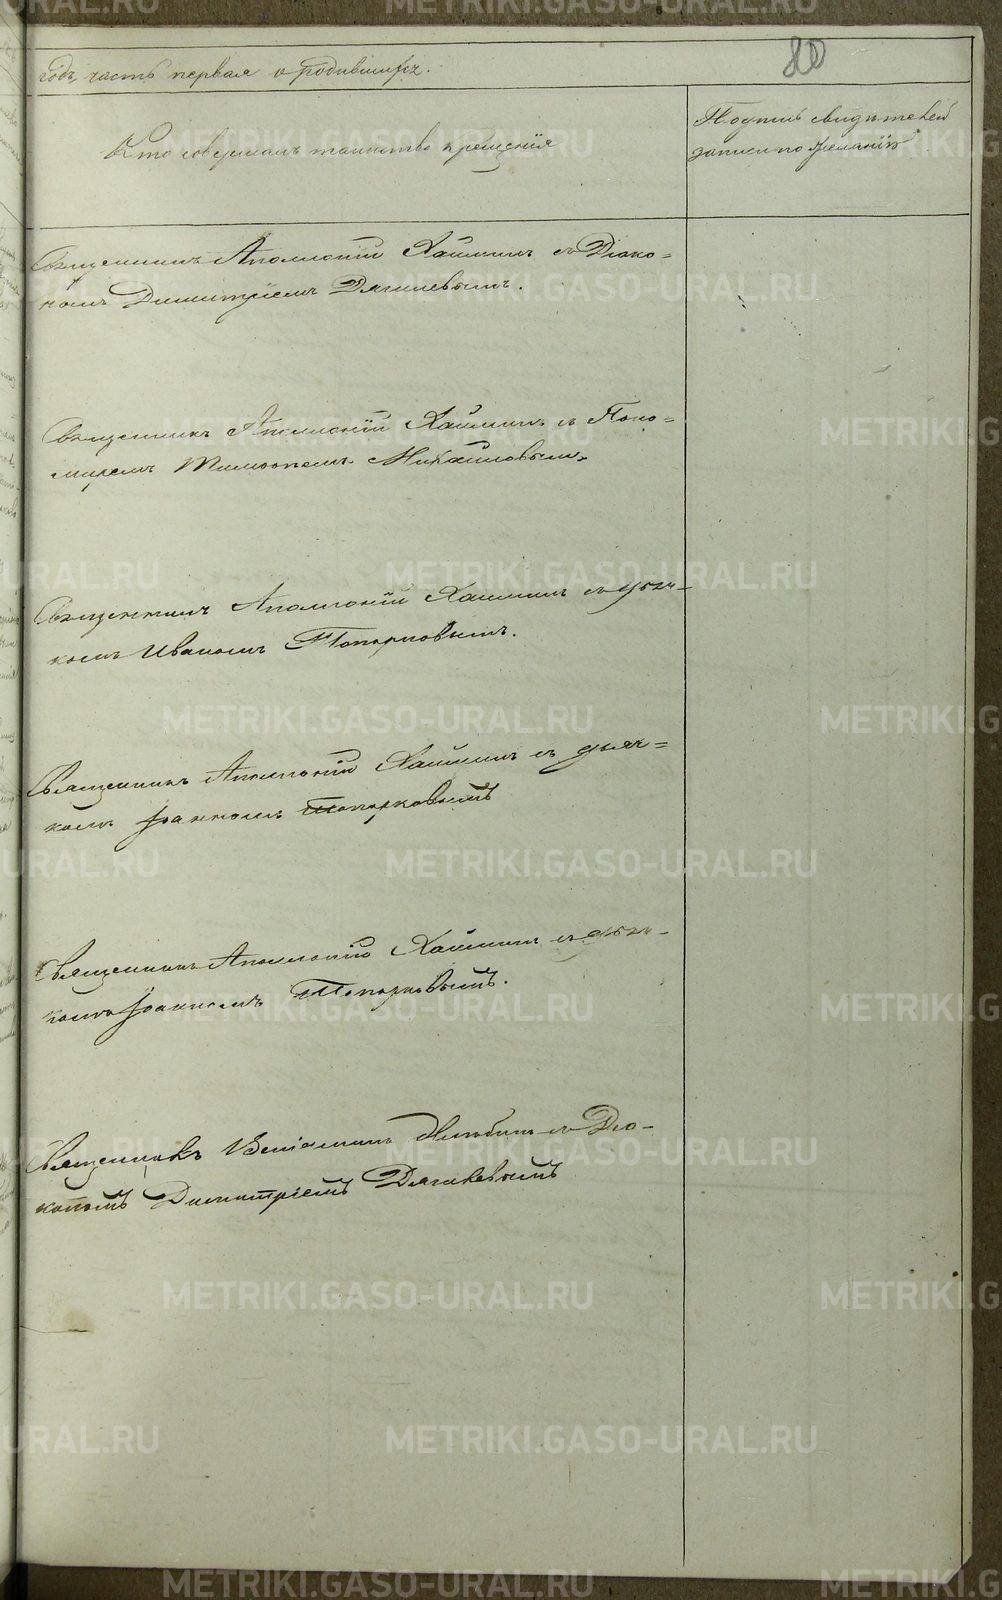 80
годъ, часть первая о родившихся.
Кто совершалъ таинство крещенія
Подпись свидѣтелей
записи по желанію
Священникъ Аполлоній Хаймин съ Діако=
номъ Димитріемъ Дягилевымъ.
Священникъ Аполлоній Хаймин съ Поно=
маремъ Михайловымъ
Священникъ Аполлоній Хаймин съ дьяч-
комъ Иваномъ Топорковымъ.
Священникъ Аполлоній Хаймин съ дьяч=
комъ Іоанномъ Топорковымъ
Священникъ Аполлоній Хаймин съ дьяч-
комъ Іоанномъ Топорковымъ.
Священникъ Веніаминъ съ Діа-
кономъ Димитріемъ Дягилевымъ
METRIKI.GASO-URAL.RU